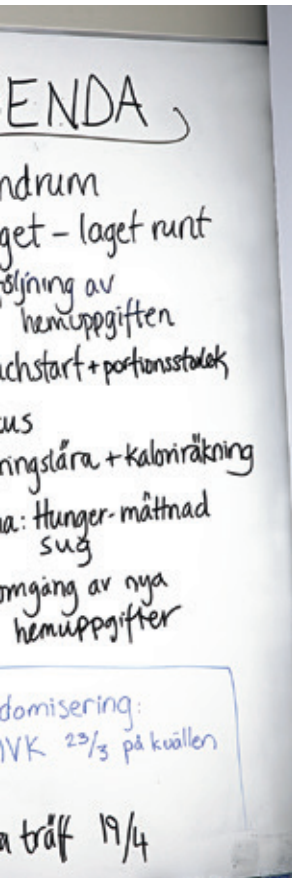 ENDA
ndrum
get - laget runt
följning av
hemuppgiften
chstart + portionsstorlek
us
ringslära + kaloriräkning
a: Hunger-mättnad
sug
omgång av nya
hemuppgifter
domisering:
VK 23/3 på kvällen
a träff 19/4